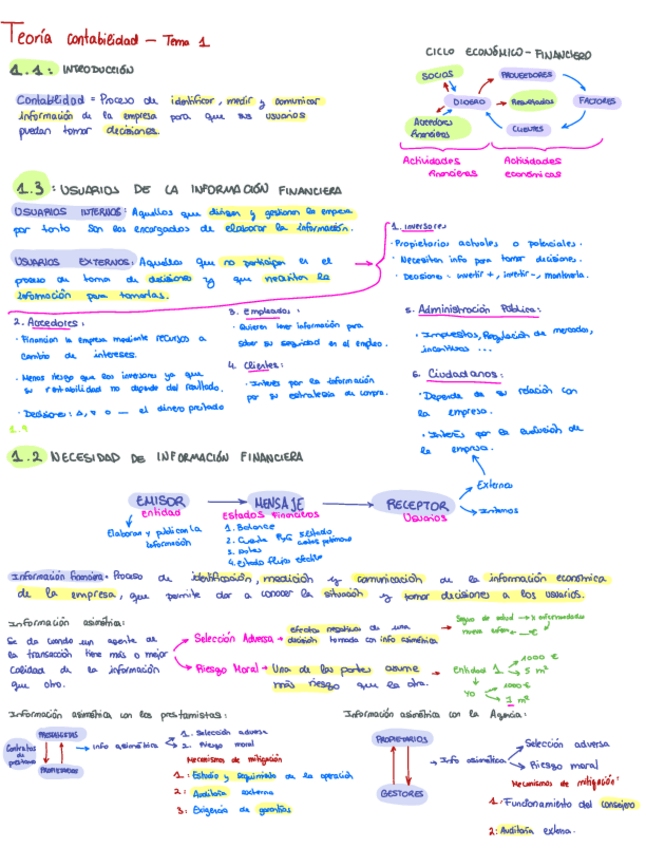 Teoría contabilidad - Tema 1
1.1: INTRODUCCIÓN
Contabilidad = Proceso de identificar, medir y comunicar
información de la empresa para que sus usuarios
puedan tomar decisiones.
CICLO ECONÓMICO-FINANCIERO
SOCIOS
PROVEEDORES
DINERO
Resultados
FACTORES
Acreedores
financieros
CLIENTES
Actividades
financieras
Actividades
económicas
1.3: USUARIOS DE LA INFORMACIÓN FINANCIERA
USUARIOS INTERNOS: Aquellos que dirigen y gestionan la empresa
por tanto son los encargados de elaborar la información.
USUARIOS EXTERNOS: Aquellos que no participan en el
proceso de toma de decisiones y que necesitan la
información para tomarlas.
1. Inversores
· Propietarios actuales o potenciales.
· Necesitan info para tomar decisiones.
· Decisiones - invertir +, invertir -, mantenerla.
2. Acreedores:
· Financian la empresa mediante recursos a
cambio de intereses.
· Menos riesgo que los inversores ya que
su rentabilidad no depende del resultado.
· Decisiones: Δ, ∇ o — el dinero prestado
3. Empleados:
· Quieren tener información para
saber su seguridad en el empleo.
4. Clientes:
· Interés por la información
por su estrategia de compra.
5. Administración Pública:
· Impuestos, Regulación de mercados,
incentivos ...
6. Ciudadanos:
· Depende de su relación con
la empresa.
· Interés por la evolución de
la empresa.
1.2 NECESIDAD DE INFORMACIÓN FINANCIERA
EMISOR
entidad
Elaboran y publican la
información
MENSAJE
Estados financieros
1. Balance
2. Cuenta PyG
3. Notas
4. Estado flujos efectivo
RECEPTOR
Usuarios
Externos
Internos
Información financiera = Proceso de identificación, medición y comunicación de la información económica
de la empresa, que permite dar a conocer la situación y tomar decisiones a los usuarios.
Información asimétrica:
Se da cuando un agente de
la transacción tiene más o mejor
calidad de la información
que otro.
Selección Adversa → efectos negativos de una
decisión tomada con info asimétrica
Seguro de salud
Riesgo Moral → Una de las partes asume
más riesgo que la otra.
entidad 1
1000 €
5 m²
yo
1000 €
1 m²
Información asimétrica con los prestamistas:
PRESTAMISTAS
Contratos
de
préstamo
info asimétrica
1. Selección adversa
2. Riesgo moral
Mecanismos de mitigación
1: Estudio y seguimiento de la operación
2: Auditoría externa
3: Exigencia de garantías
Información asimétrica con la Agencia:
PROPIETARIOS
GESTORES
Info asimétrica
Selección adversa
Riesgo moral
Mecanismos de mitigación:
1: Funcionamiento del consejero
2: Auditoría externa.